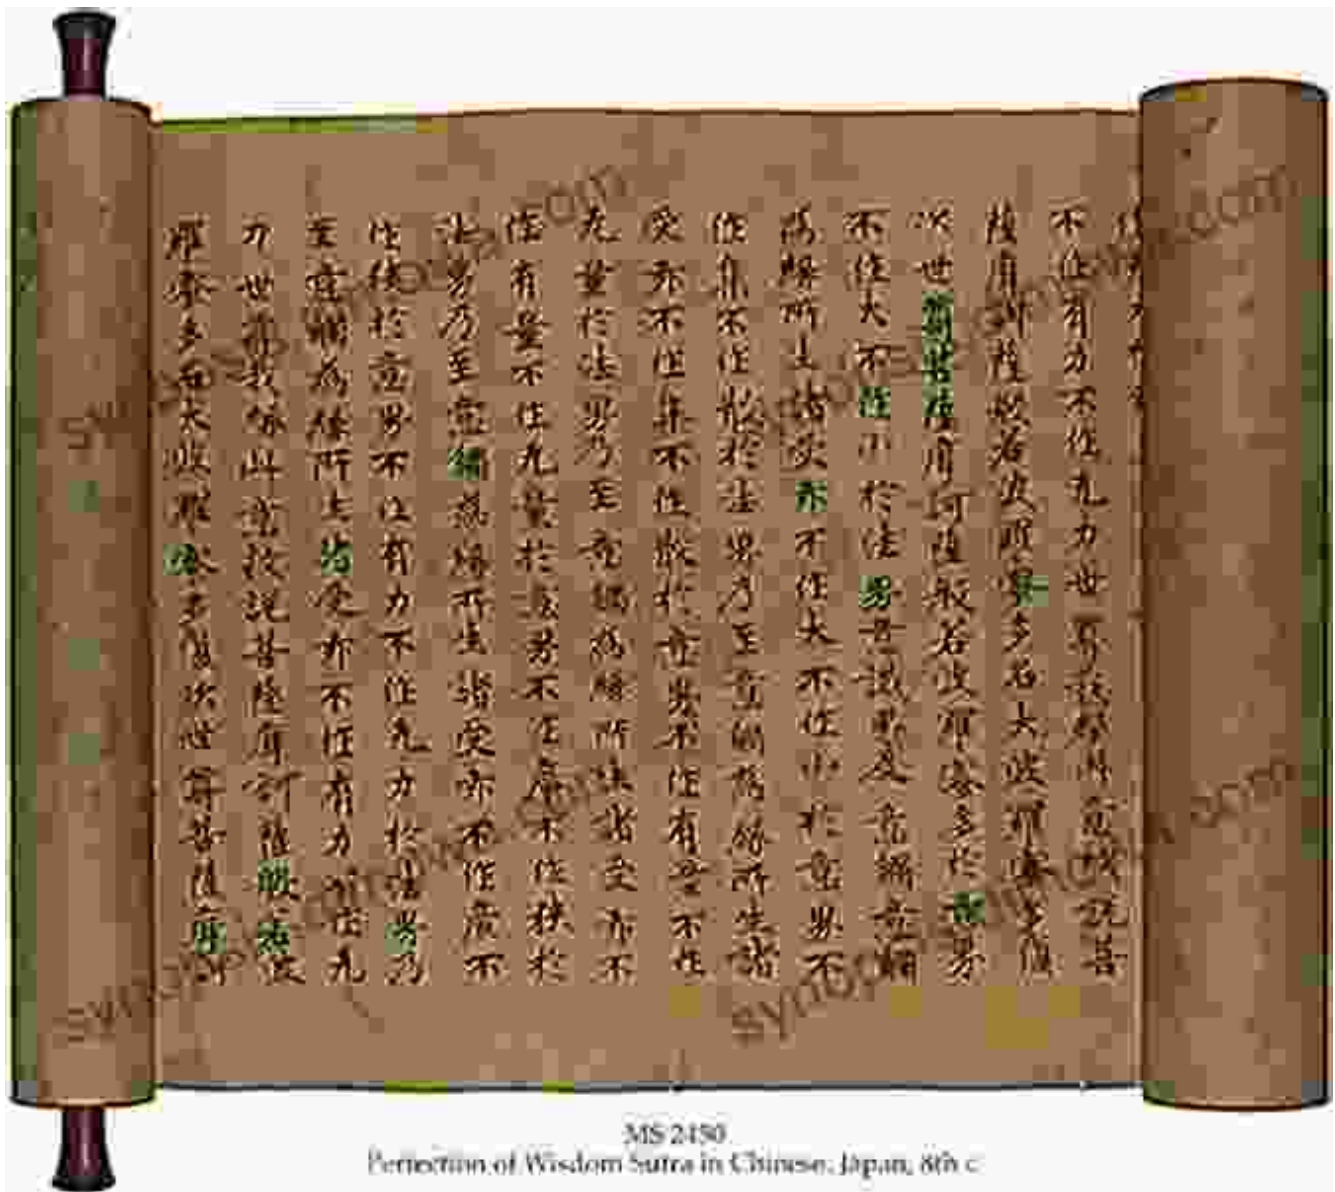 不作有力不作无力世尊我緣此意故說菩
薩摩訶薩般若波羅蜜多名大波羅蜜多復
次世尊菩薩摩訶薩般若波羅蜜多於意界
不作大不作小於法界意識界及意觸意觸
為緣所生諸受亦不作大不作小於意界不
作集不作散於法界乃至意觸為緣所生諸
受亦不作集不作散於意界不作有量不作
无量於法界乃至意觸為緣所生諸受亦不
作有量不作无量於意界不作廣不作狹於
法界乃至意觸為緣所生諸受亦不作廣不
作狹於意界不作有力不作无力於法界乃
至意觸為緣所生諸受亦不作有力不作无
力世尊我緣此意故說菩薩摩訶薩般若波
羅蜜多名大波羅蜜多復次世尊菩薩摩訶
MS 2480
Perfection of Wisdom Sutra in Chinese. Japan, 8th c